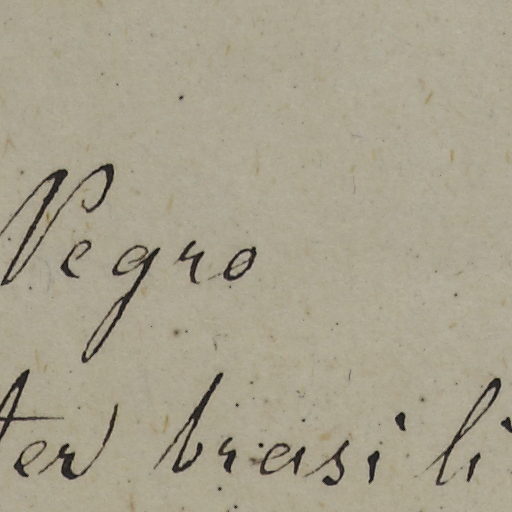 Negro
ter brasili